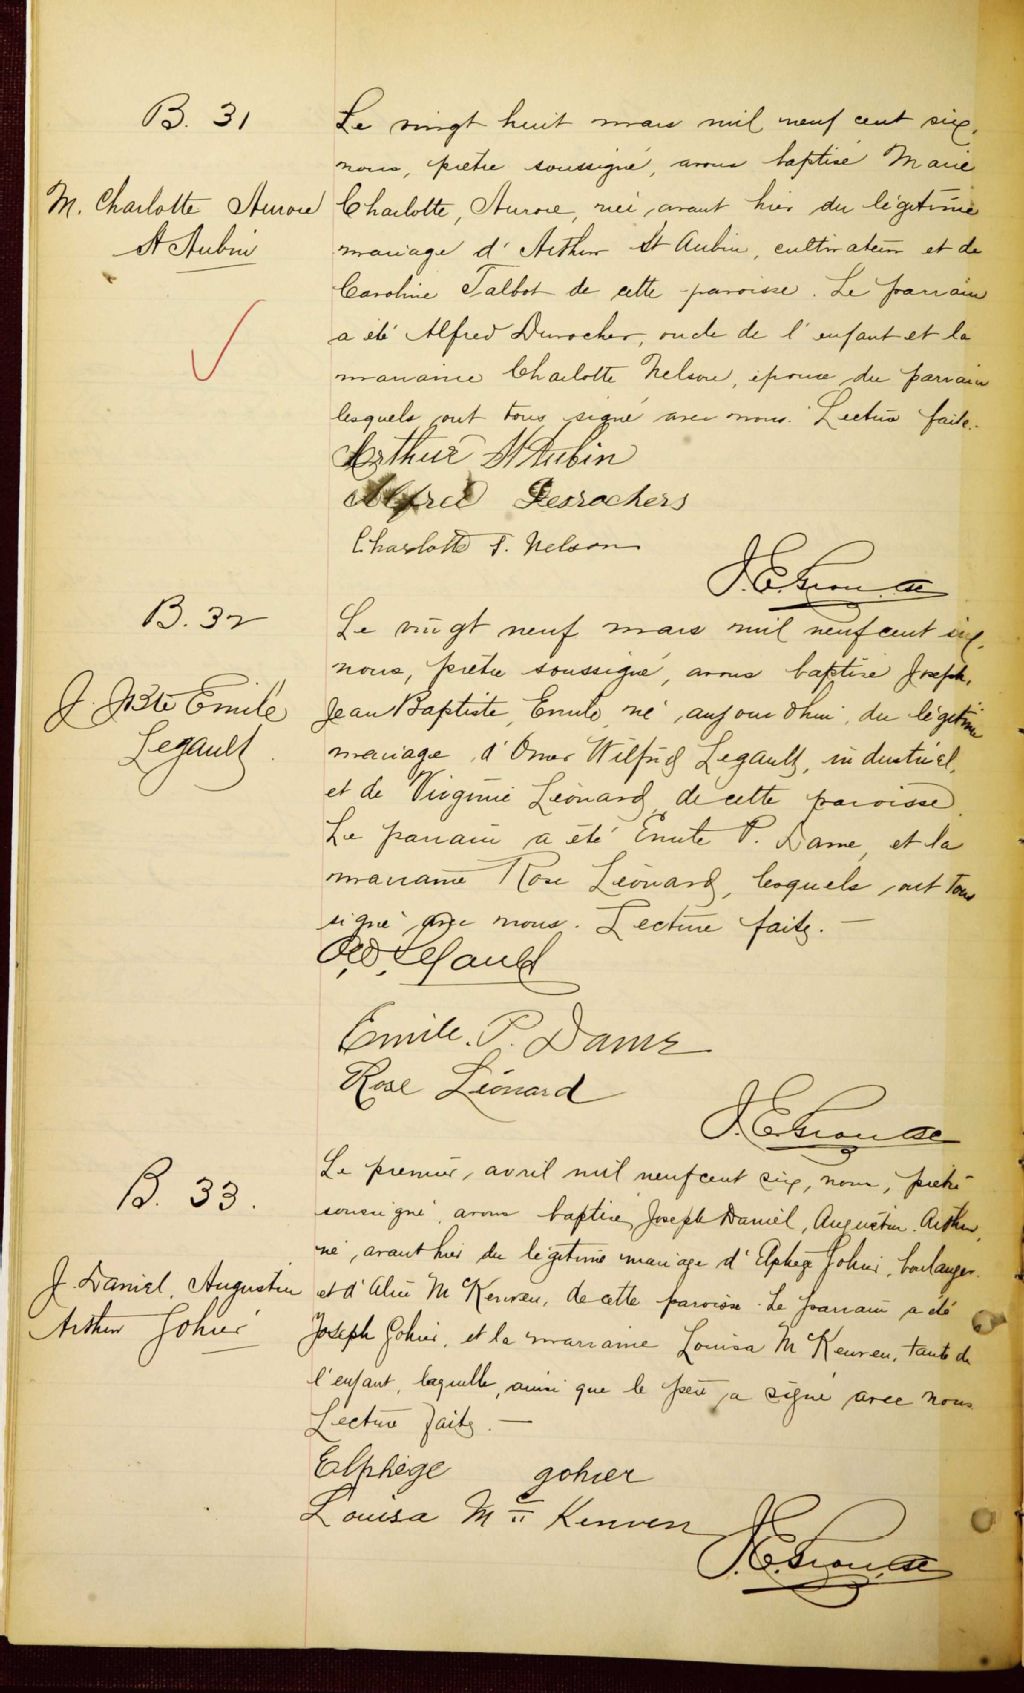 B. 31
M. Charlotte Aurore
St Aubin
Le vingt huit mars mil neuf cent six,
nous, prêtre soussigné, avons baptisé Marie
Charlotte, Aurore, née, avant hier du légitime
mariage d' Arthur St Aubin, cultivateur et de
Caroline Talbot de cette paroisse. Le parrain
a été Alfred Durocher, oncle de l'enfant et la
marraine Charlotte Nelson, épouse du parrain
lesquels ont tous signé avec nous. Lecture faite.
Arthur St Aubin
Alfred Desrochers
Charlotte T. Nelson
B. 32
J. JBte Emile
Legault
Le vingt neuf mars mil neuf cent six,
nous, prêtre soussigné, avons baptisé Joseph,
Jean Baptiste, Emile, né, aujourdhui, du légitime
mariage d'Omer Wilfrid Legault, industriel,
et de Virginie Léonard, de cette paroisse.
Le parrain a été Emile P. Dame, et la
marraine Rose Léonard, lesquels ont tous
signé avec nous. Lecture faite. —
O.W. Legault
Emile. P. Dame
Rose Léonard
B. 33.
J. Daniel, Augustin
Arthur Gohier
Le premier, avril mil neuf cent six, nous, prêtre
soussigné, avons baptisé, Joseph Daniel, Augustin, Arthur,
né, avant hier du légitime mariage d'Elphège Gohier, boulanger
et d'Alice McKenven, de cette paroisse. Le parrain a été
Joseph Gohier, et la marraine Louisa McKenven, tante de
l'enfant, laquelle, ainsi que le père, a signé avec nous
Lecture faite. —
Elphège gohier
Louisa Mc Kenven